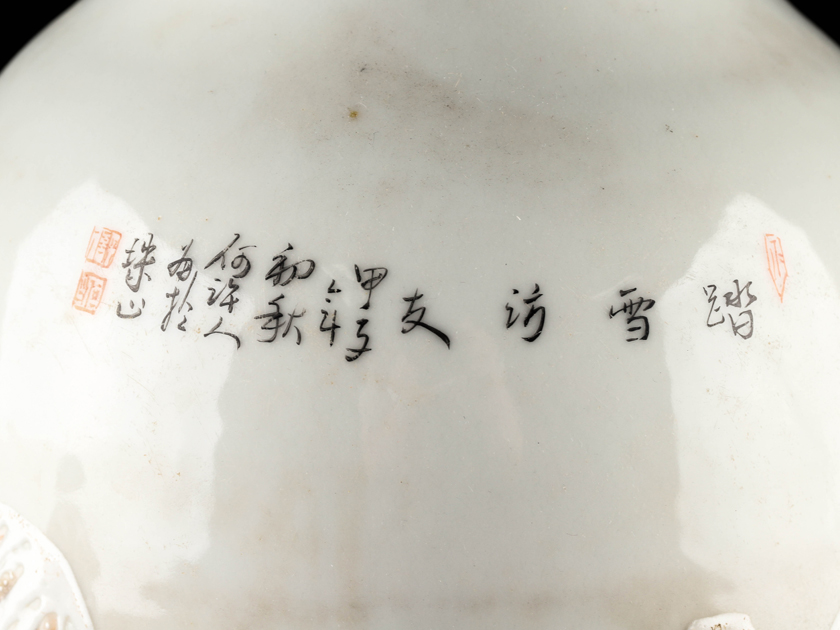 踏雪訪友
甲子
年
初秋
何許人
為於
珠山